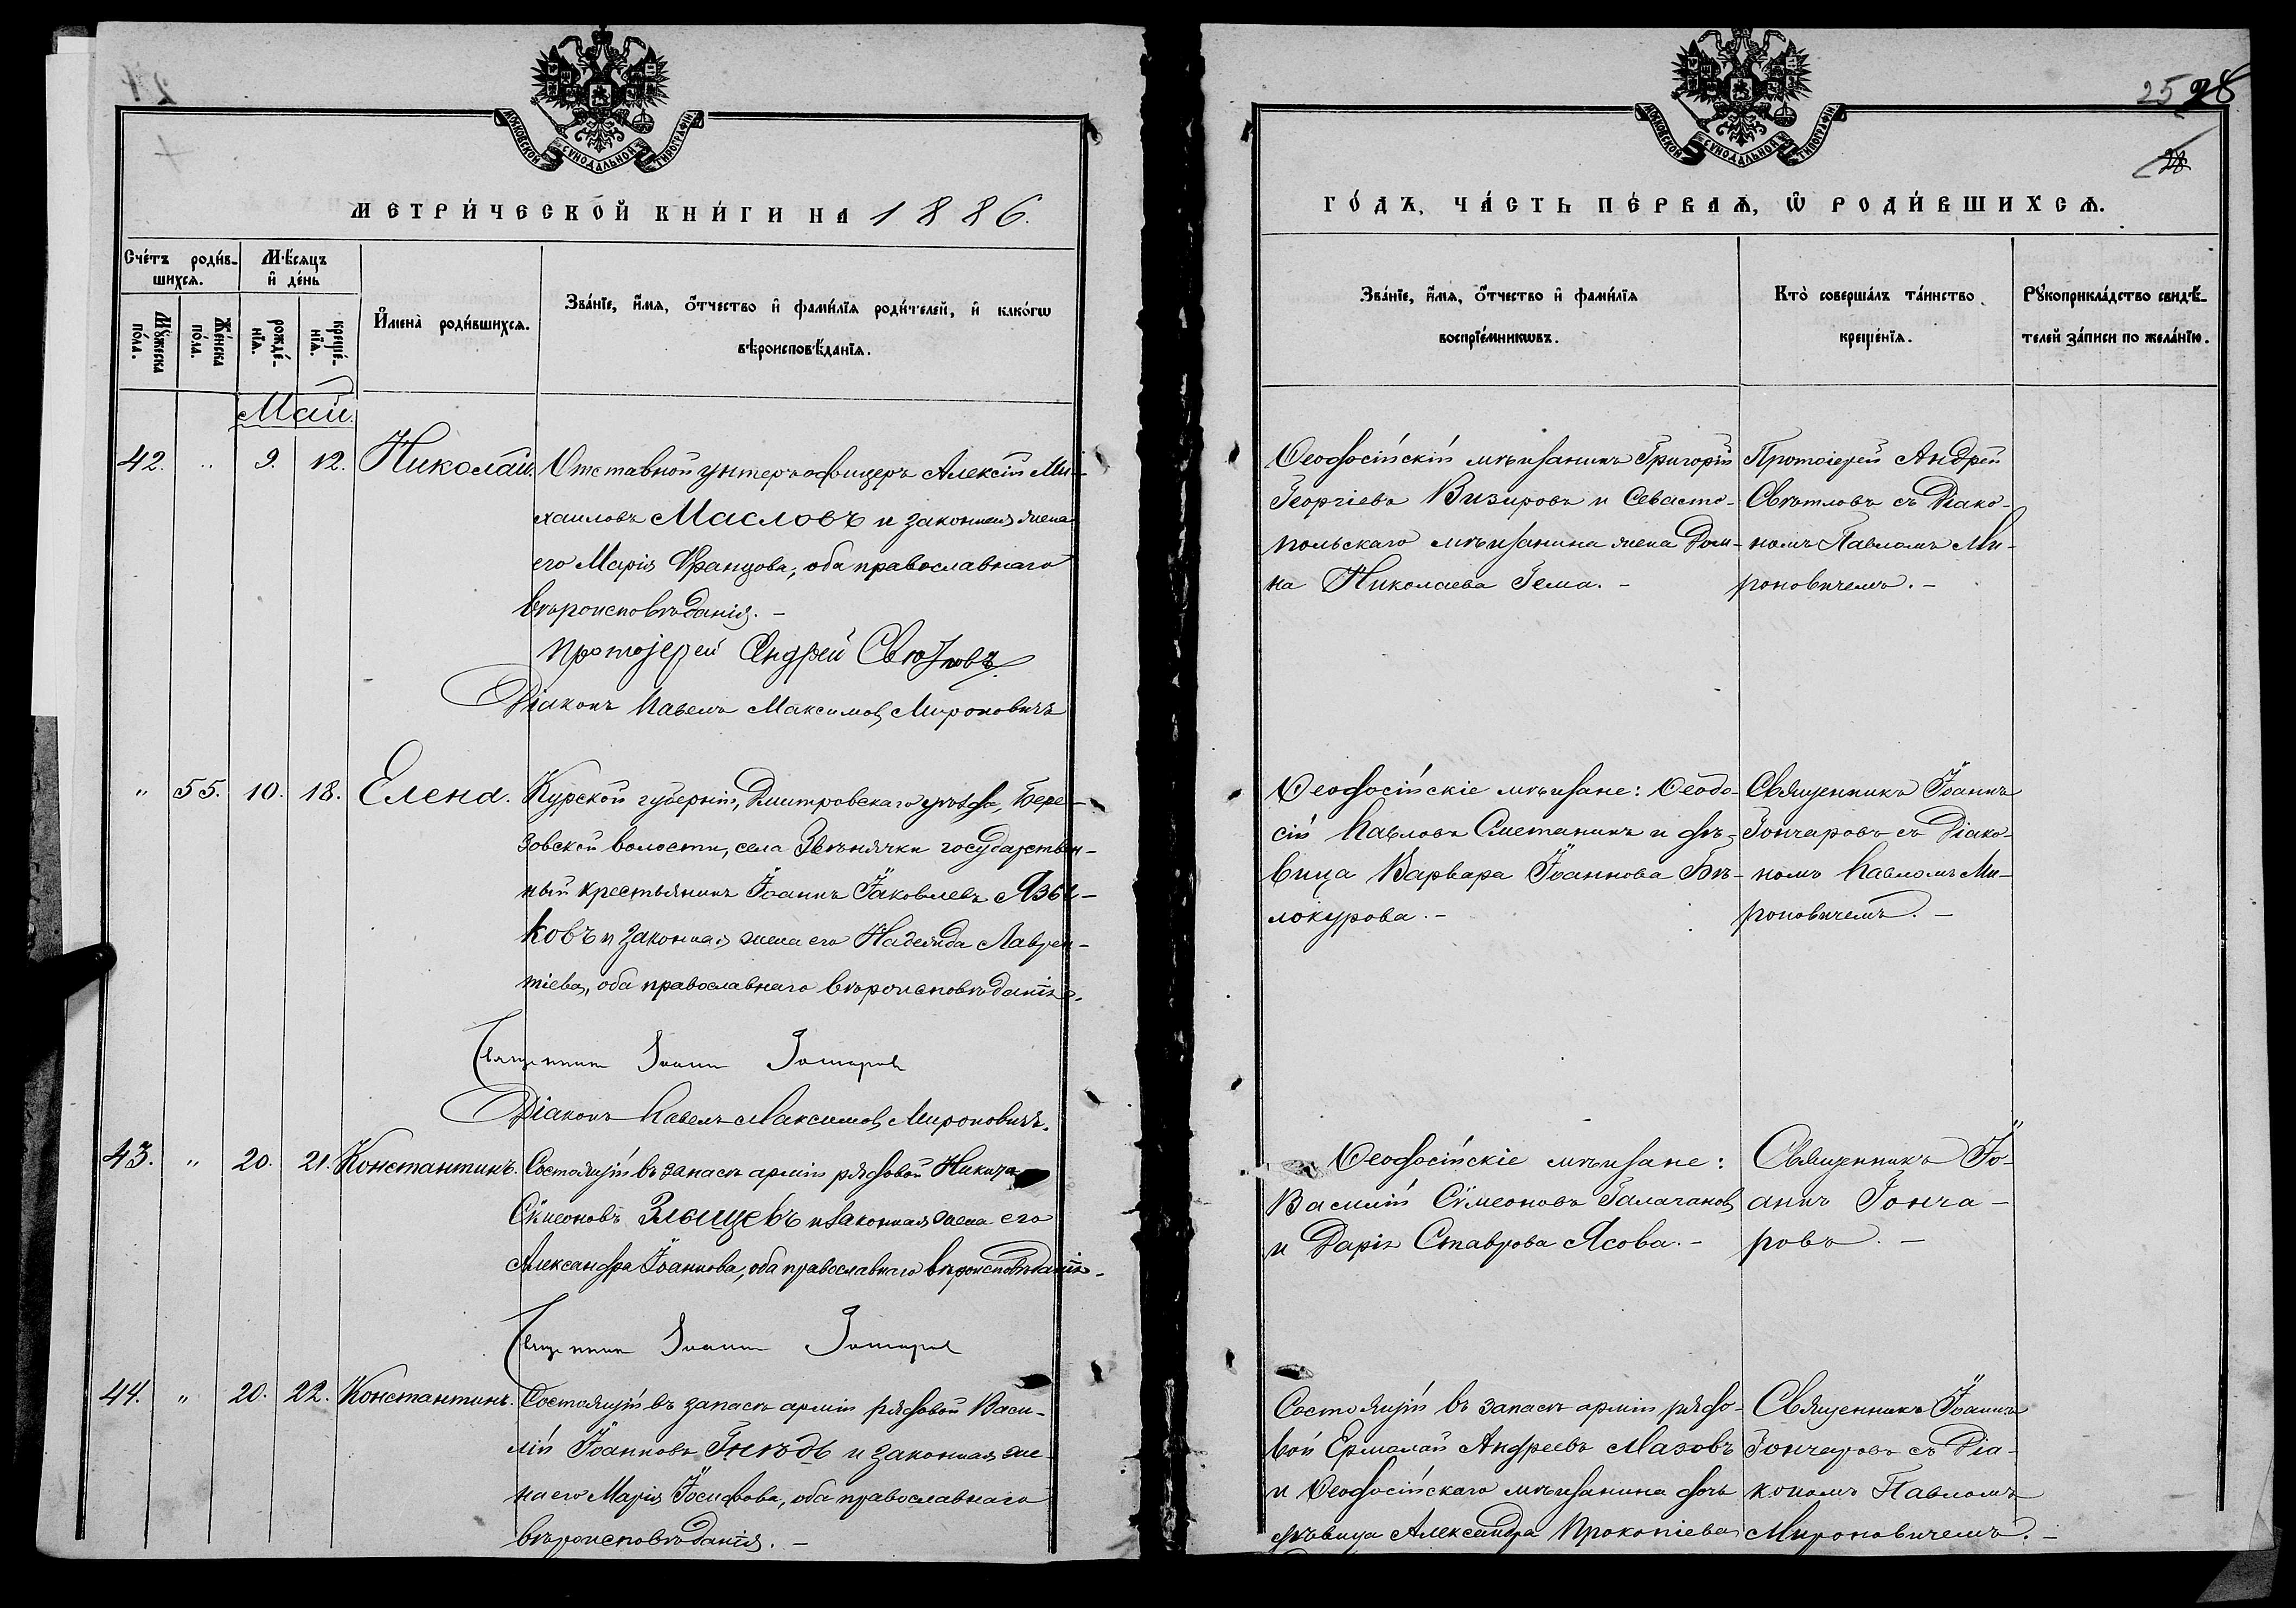 МОСКОВСКОЙ СѴНОДАЛЬНОЙ ТИПОГРАФІИ
МЕТРИ́ЧЕСКОЙ КНИ́ГИ НА 1886.
Сче́тъ роди́в-
шихся.
Мѣ́сяцъ
и҆ де́нь
Мꙋ́жеска
по́ла.
Же́нска
по́ла.
рожде́-
нїѧ.
креще́-
нїѧ.
И҆мена̀ роди́вшихсѧ.
Зва́нїе, и҆́мѧ, ѻ҆́тчество и҆ фами́лїѧ роди́телей, и҆ како́гѡ
вѣроисповѣ́данїѧ.
Май.
42. " 9. 12. Николай. Отставной унтеръ-офицеръ Алексій Ми-
хаиловъ Масловъ и законная жена
его Марія Францова, оба православнаго
вѣроисповѣданія. –
Протоіерей Андрей Свѣтловъ
Діаконъ Павелъ Максимовъ Мироновичъ
" 55. 10. 18. Елена. Курской губерніи, Дмитровскаго уѣзда, Бере-
зовской волости, села государствен-
ный крестьянинъ Іоаннъ Іаковлевъ Язы-
ковъ и законная жена его Надежда Лаврен-
тіева, оба православнаго вѣроисповѣданія.
Священникъ Іоаннъ Гончаровъ
Діаконъ Павелъ Максимовъ Мироновичъ.
43. " 20. 21. Константинъ. Состоящій въ запасѣ арміи рядовой Никита
Сѵмеоновъ Злыщевъ и законная жена его
Александра Іоаннова, оба православнаго вѣроисповѣданія.
Священникъ Іоаннъ Гончаровъ
44. " 20. 22. Константинъ. Состоящій въ запасѣ арміи рядовой Васи-
лій Іоанновъ Гнѣдь и законная же-
на его Марія Іосифова, оба православнаго
вѣроисповѣданія. –
МОСКОВСКОЙ СѴНОДАЛЬНОЙ ТИПОГРАФІИ
25 28
28
ГО́ДЪ, ЧА́СТЬ ПЕ́РВАѦ, Ѡ҆ РОДИ́ВШИХСѦ.
Зва́нїе, и҆́мѧ, ѻ҆́тчество и҆ фами́лїѧ
воспрїе́мникѡвъ.
Кто̀ соверша́лъ та́инство
креще́нїѧ.
Рꙋкоприкла́дство свидѣ́-
телей за́писи по жела́нїю.
Ѳеодосійскій мѣщанинъ Григорій
Георгіевъ Визировъ и Севасто-
польскаго мѣщанина жена Дом-
на Николаева Гема. –
Протоіерей Андрей
Свѣтловъ съ Діако-
номъ Павломъ Ми-
роновичемъ. –
Ѳеодосійскіе мѣщане: Ѳеодо-
сій Павловъ Сметанинъ и дѣ-
вица Варвара Іоаннова Бѣ-
локурова. –
Священникъ Іоаннъ
Гончаровъ съ Діако-
номъ Павломъ Ми-
роновичемъ. –
Ѳеодосійскіе мѣщане:
Василій Сѵмеоновъ Галагановъ
и Дарія Ставрова Ясова. –
Священникъ Іо-
аннъ Гонча-
ровъ. –
Состоящій въ запасѣ арміи рядо-
вой Ермолай Андреевъ Мазовъ
и Ѳеодосійскаго мѣщанина дочь
дѣвица Александра Прокопіева
Священникъ Іоаннъ
Гончаровъ съ Діа-
кономъ Павломъ
Мироновичемъ. –